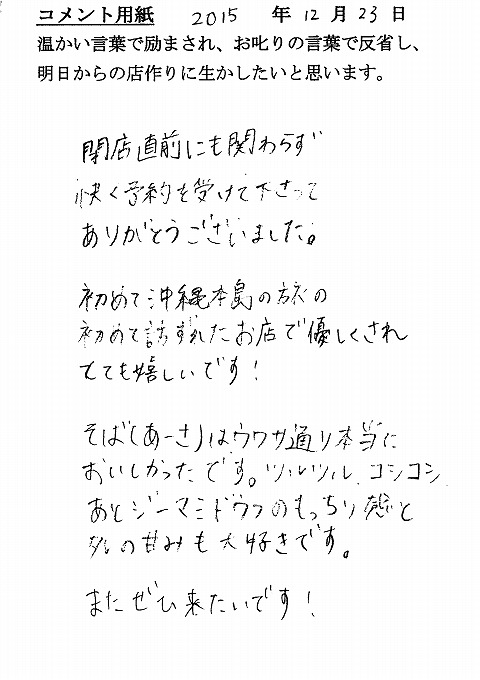 コメント用紙 2015 年 12 月 23 日
温かい言葉で励まされ、お叱りの言葉で反省し、
明日からの店作りに生かしたいと思います。
閉店直前にも関わらず
快く予約を受けて下さって
ありがとうございました。
初めて沖縄本島の旅の
初めて訪ずれたお店で優しくされ
とても嬉しいです!
そば(あーさ)はウワサ通り本当に
おいしかったです。ツルツル コシコシ
あとジーマミドウフのもっちり感と
の甘みも大好きです。
またぜひ来たいです!